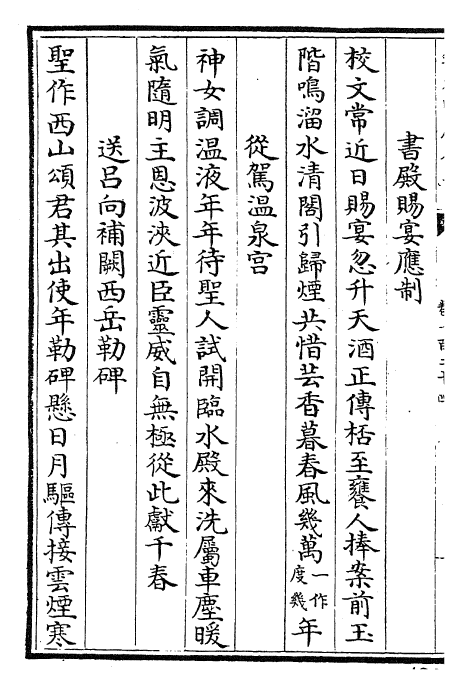 書殿賜宴應制
校文常近日賜宴忽升天酒正傳桮至饔人捧案前玉
階鳴溜水清閣引歸煙共惜芸香暮春風幾萬一作度幾年
從駕溫泉宮
神女調温液年年待聖人試開臨水殿來洗屬車塵暖
氣隨明主恩波浹近臣靈威自無極從此獻千春
送呂向補闕西岳勒碑
聖作西山頌君其出使年勒碑懸日月驅傳接雲煙寒